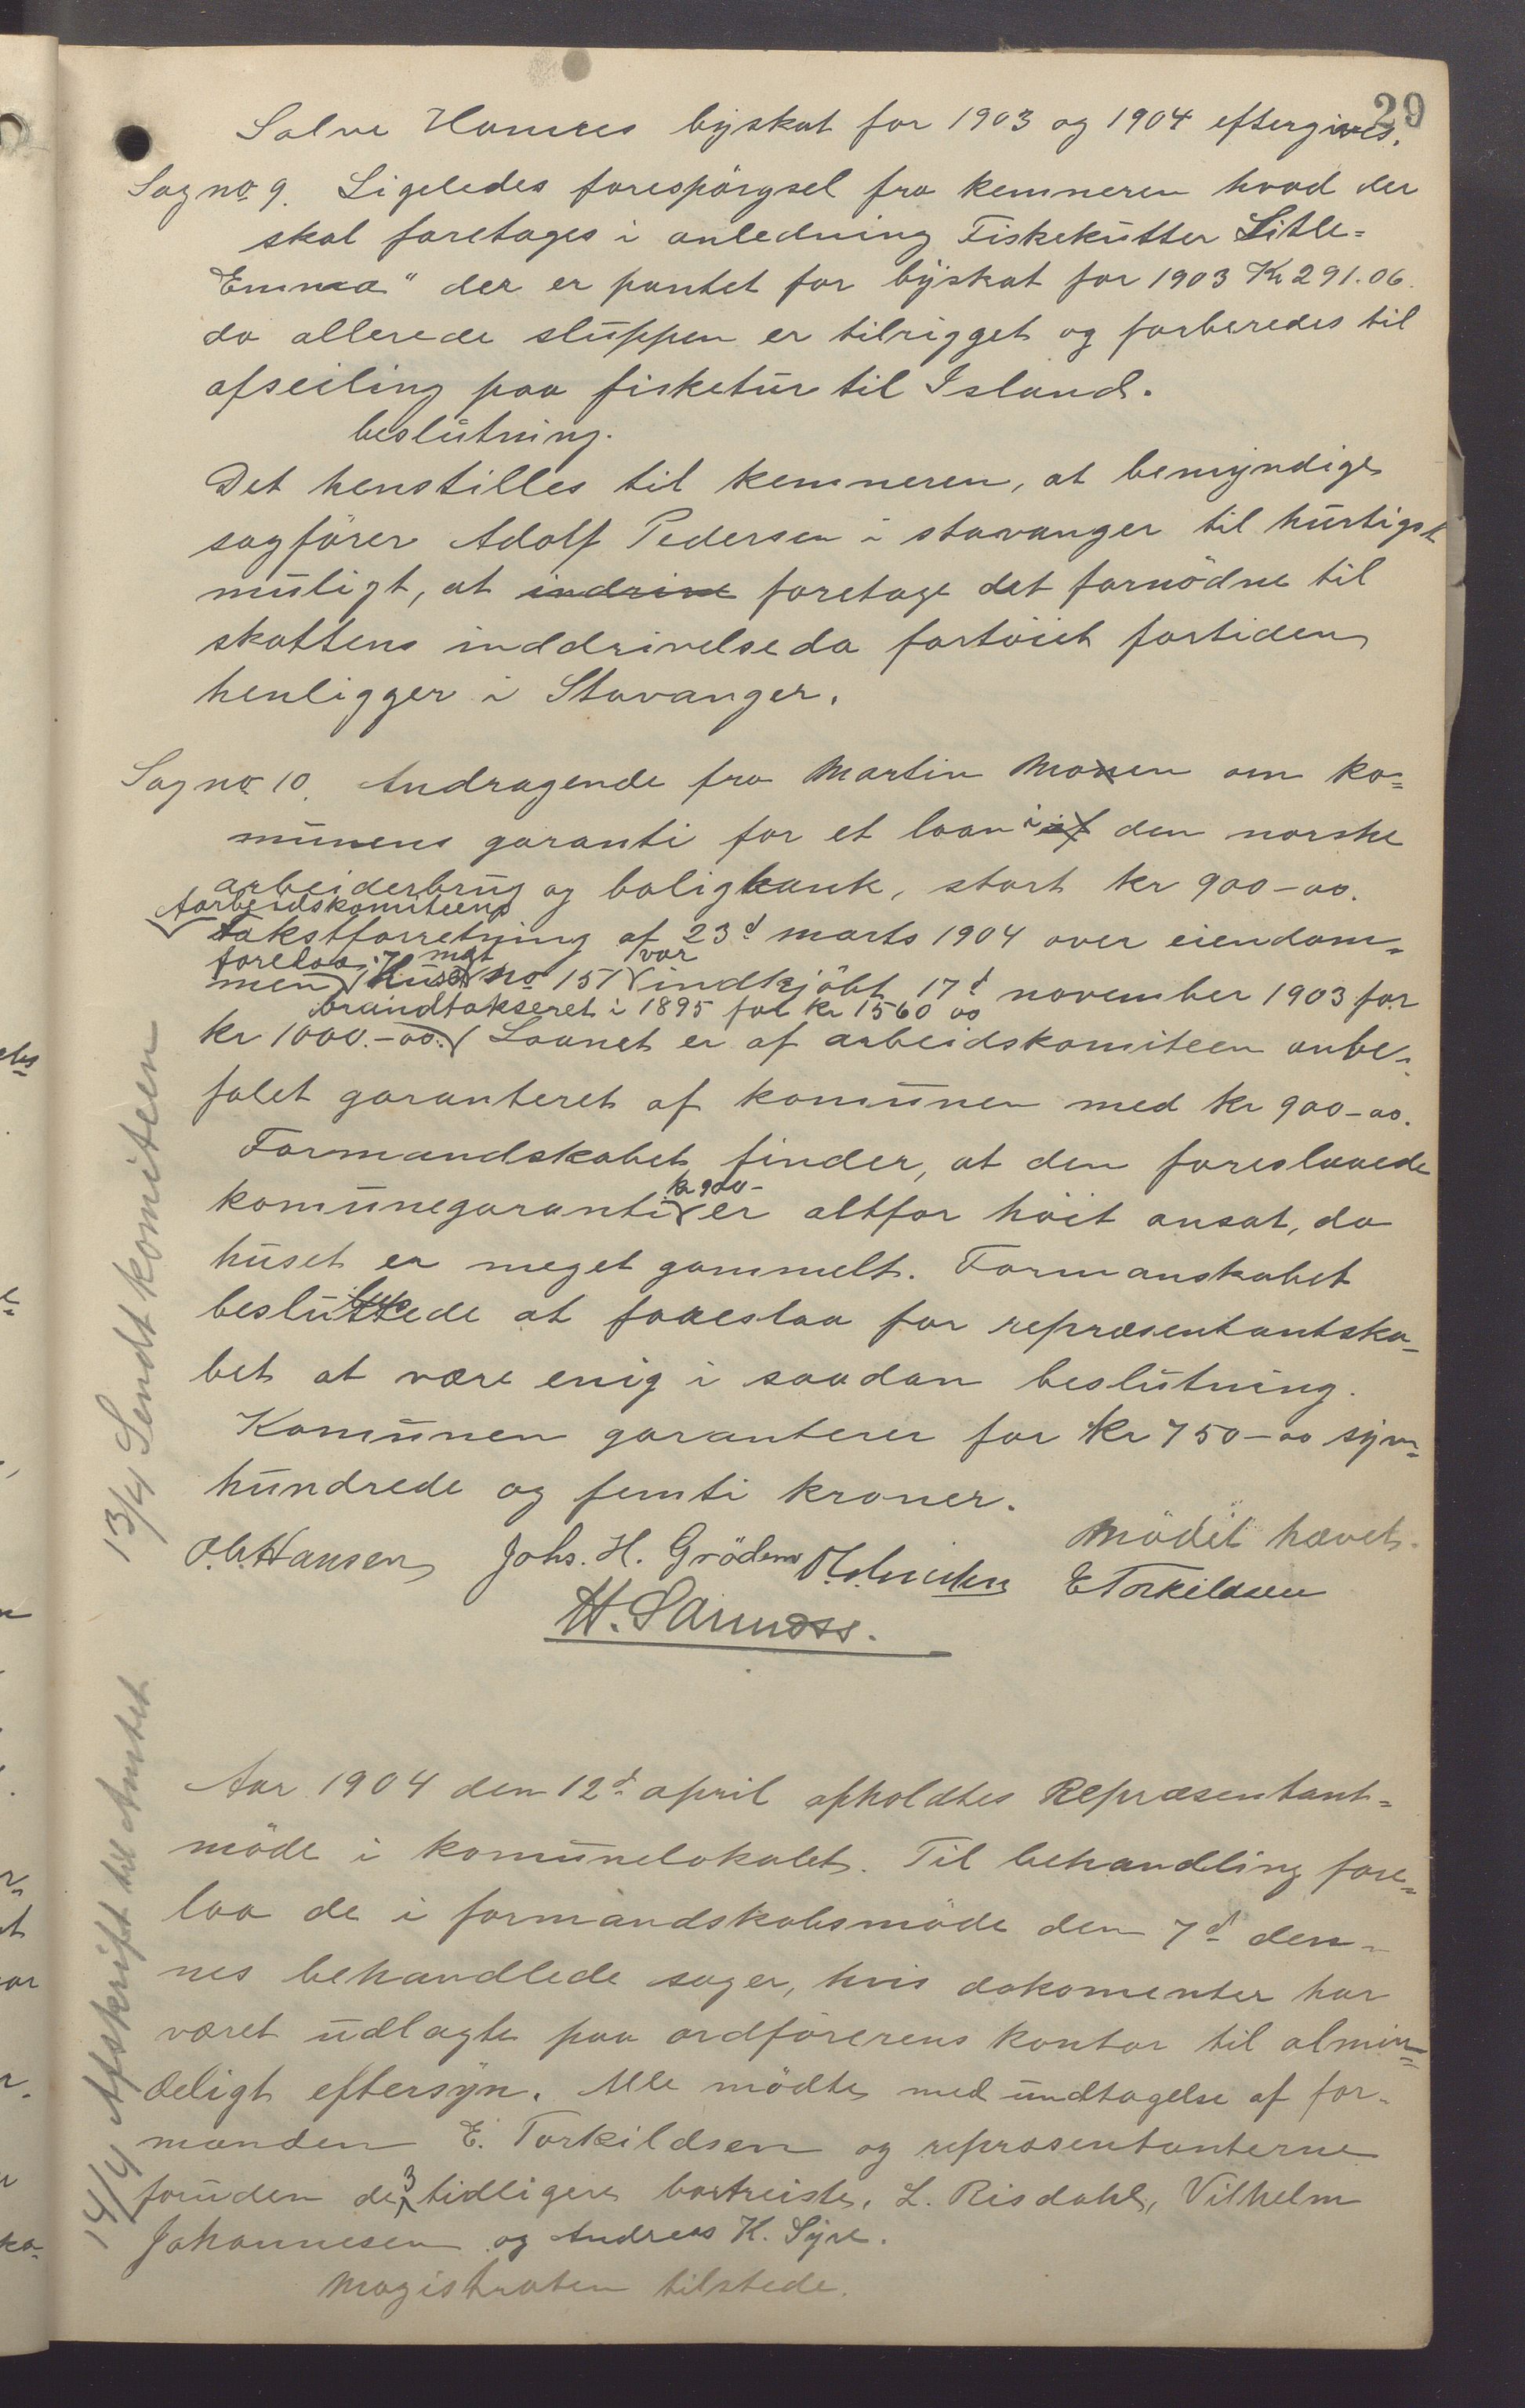 29
Salve Hamres byskat for 1903 og 1904 eftergives.
Sag no. 9. Ligeledes forespörgsel fra kemneren hvad der
skal foretages i anledning Fiskekutter Litle=
Emma" der er pantet for byskat for 1903 Kr 291.06.
da allerede sluppen er tilrigget og forberedes til
afseiling paa fisketur til Island.
beslutning.
Det henstilles til kemneren, at bemyndige
sagförer Adolf Pedersen i stavanger til hurtigst
muligt, at indrive foretage det fornödne til
skattens inddrivelse da fartöiet fortiden
henligger i Stavanger.
Sag no 10. Andragende fra Martin Monen om ko=
munens garanti for et laan i af den norske
arbeiderbrug og boligbank, stort kr 900-00.
Aarbeidskomiteens
Takstforretning af 23d marts 1904 over eiendom=
forelaa mgt var
men Huset no 157 indkjöbt 17d november 1903 for
brandtakseret i 1895 fol kr 1560 00
kr 1000.-00. Laanet er af arbeidskomiteen anbe=
falet garanteret af komunen med kr 900-00.
Formandskabet finder, at den foreslaaede
kr 900-
komunegaranti er altfor höit ansat, da
huset er meget gammelt. Formanskabet
besluttede at foreslaa for repræsentantska=
bet at være enig i saadan beslutning.
Komunen garanterer for kr 750-00 syv=
hundrede og femti kroner.
Mödet hævet.
O.A. Hansen Johs. H. Grödem E Torkildsen
13/4 Sendt komiteen
Aar 1904 den 12d april afholdtes Repræsentant=
möde i komunelokalet. Til behandling fore=
laa de i formandskabsmöde den 7d den=
nes behandlede sager, hvis dokomenter har
været udlagte paa ordförerens kontor til almin=
deligt eftersyn. Alle mödte med undtagelse af for=
manden E. Torkildsen og repræsentanterne
foruden de 3 tidligere bortreiste, L. Risdahl, Vilhelm
Johannesen og Andreas K. Syre.
Magistraten tilstede.
14/4 Afskrift til Amtet